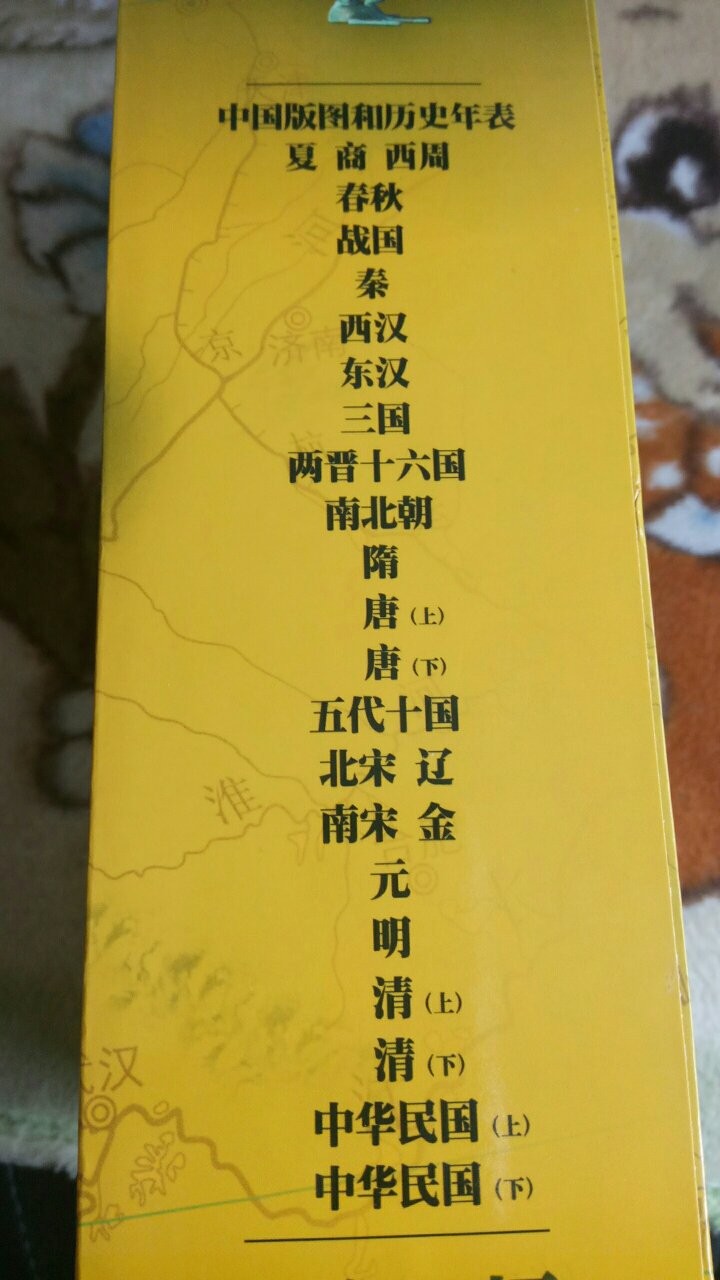 中国版图和历史年表
夏 商 西周
春秋
战国
秦
西汉
东汉
三国
两晋十六国
南北朝
隋
唐（上）
唐（下）
五代十国
北宋 辽
南宋 金
元
明
清（上）
清（下）
中华民国（上）
中华民国（下）
京
济南
淮
武汉